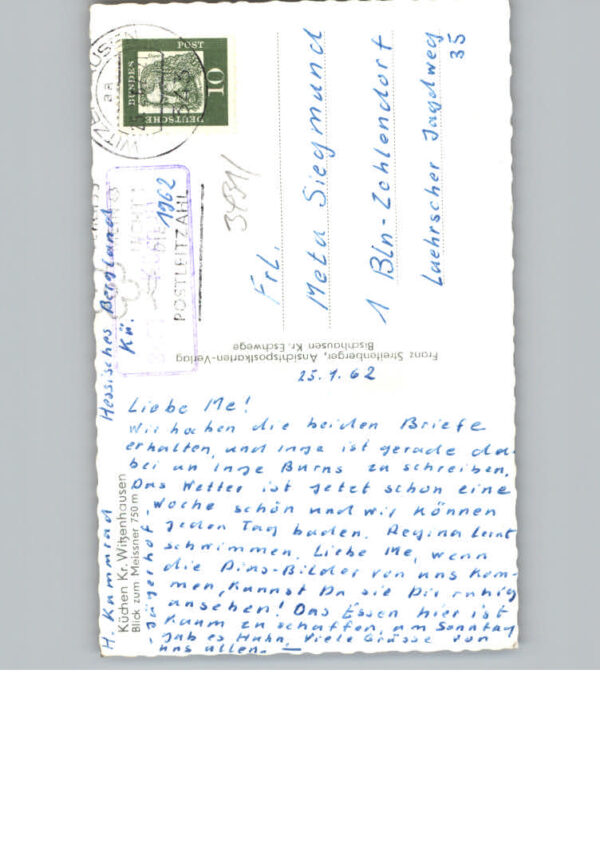 WITZENHAUSEN
DEUTSCHE
BUNDES
POST
10
POSTLEITZAHL
1962
3431/
Frl.
Meta Siegmund
1 Bln-Zehlendorf
Luehrscher Jagdweg
35
Franz Streitenberger, Ansichtspostkarten-Verlag
Bischhausen Kr. Eschwege
Hessisches Bergland
Kü.
H. Kammrad
Jägerhof
Küchen Kr. Witzenhausen
Blick zum Meissner 750 m
25.7.62
Liebe Me!
Wir haben die beiden Briefe
erhalten, und Inge ist gerade da-
bei an Inge Burns zu schreiben.
Das Wetter ist jetzt schon eine
Woche schön und wir können
jeden Tag baden. Regina lernt
schwimmen. Liebe Me, wenn
die Dias-Bilder von uns kom-
men, kannst Du sie Dir ruhig
ansehen! Das Essen hier ist
kaum zu schaffen, am Sonntag
gab es Huhn. Viele Grüsse von
uns allen.